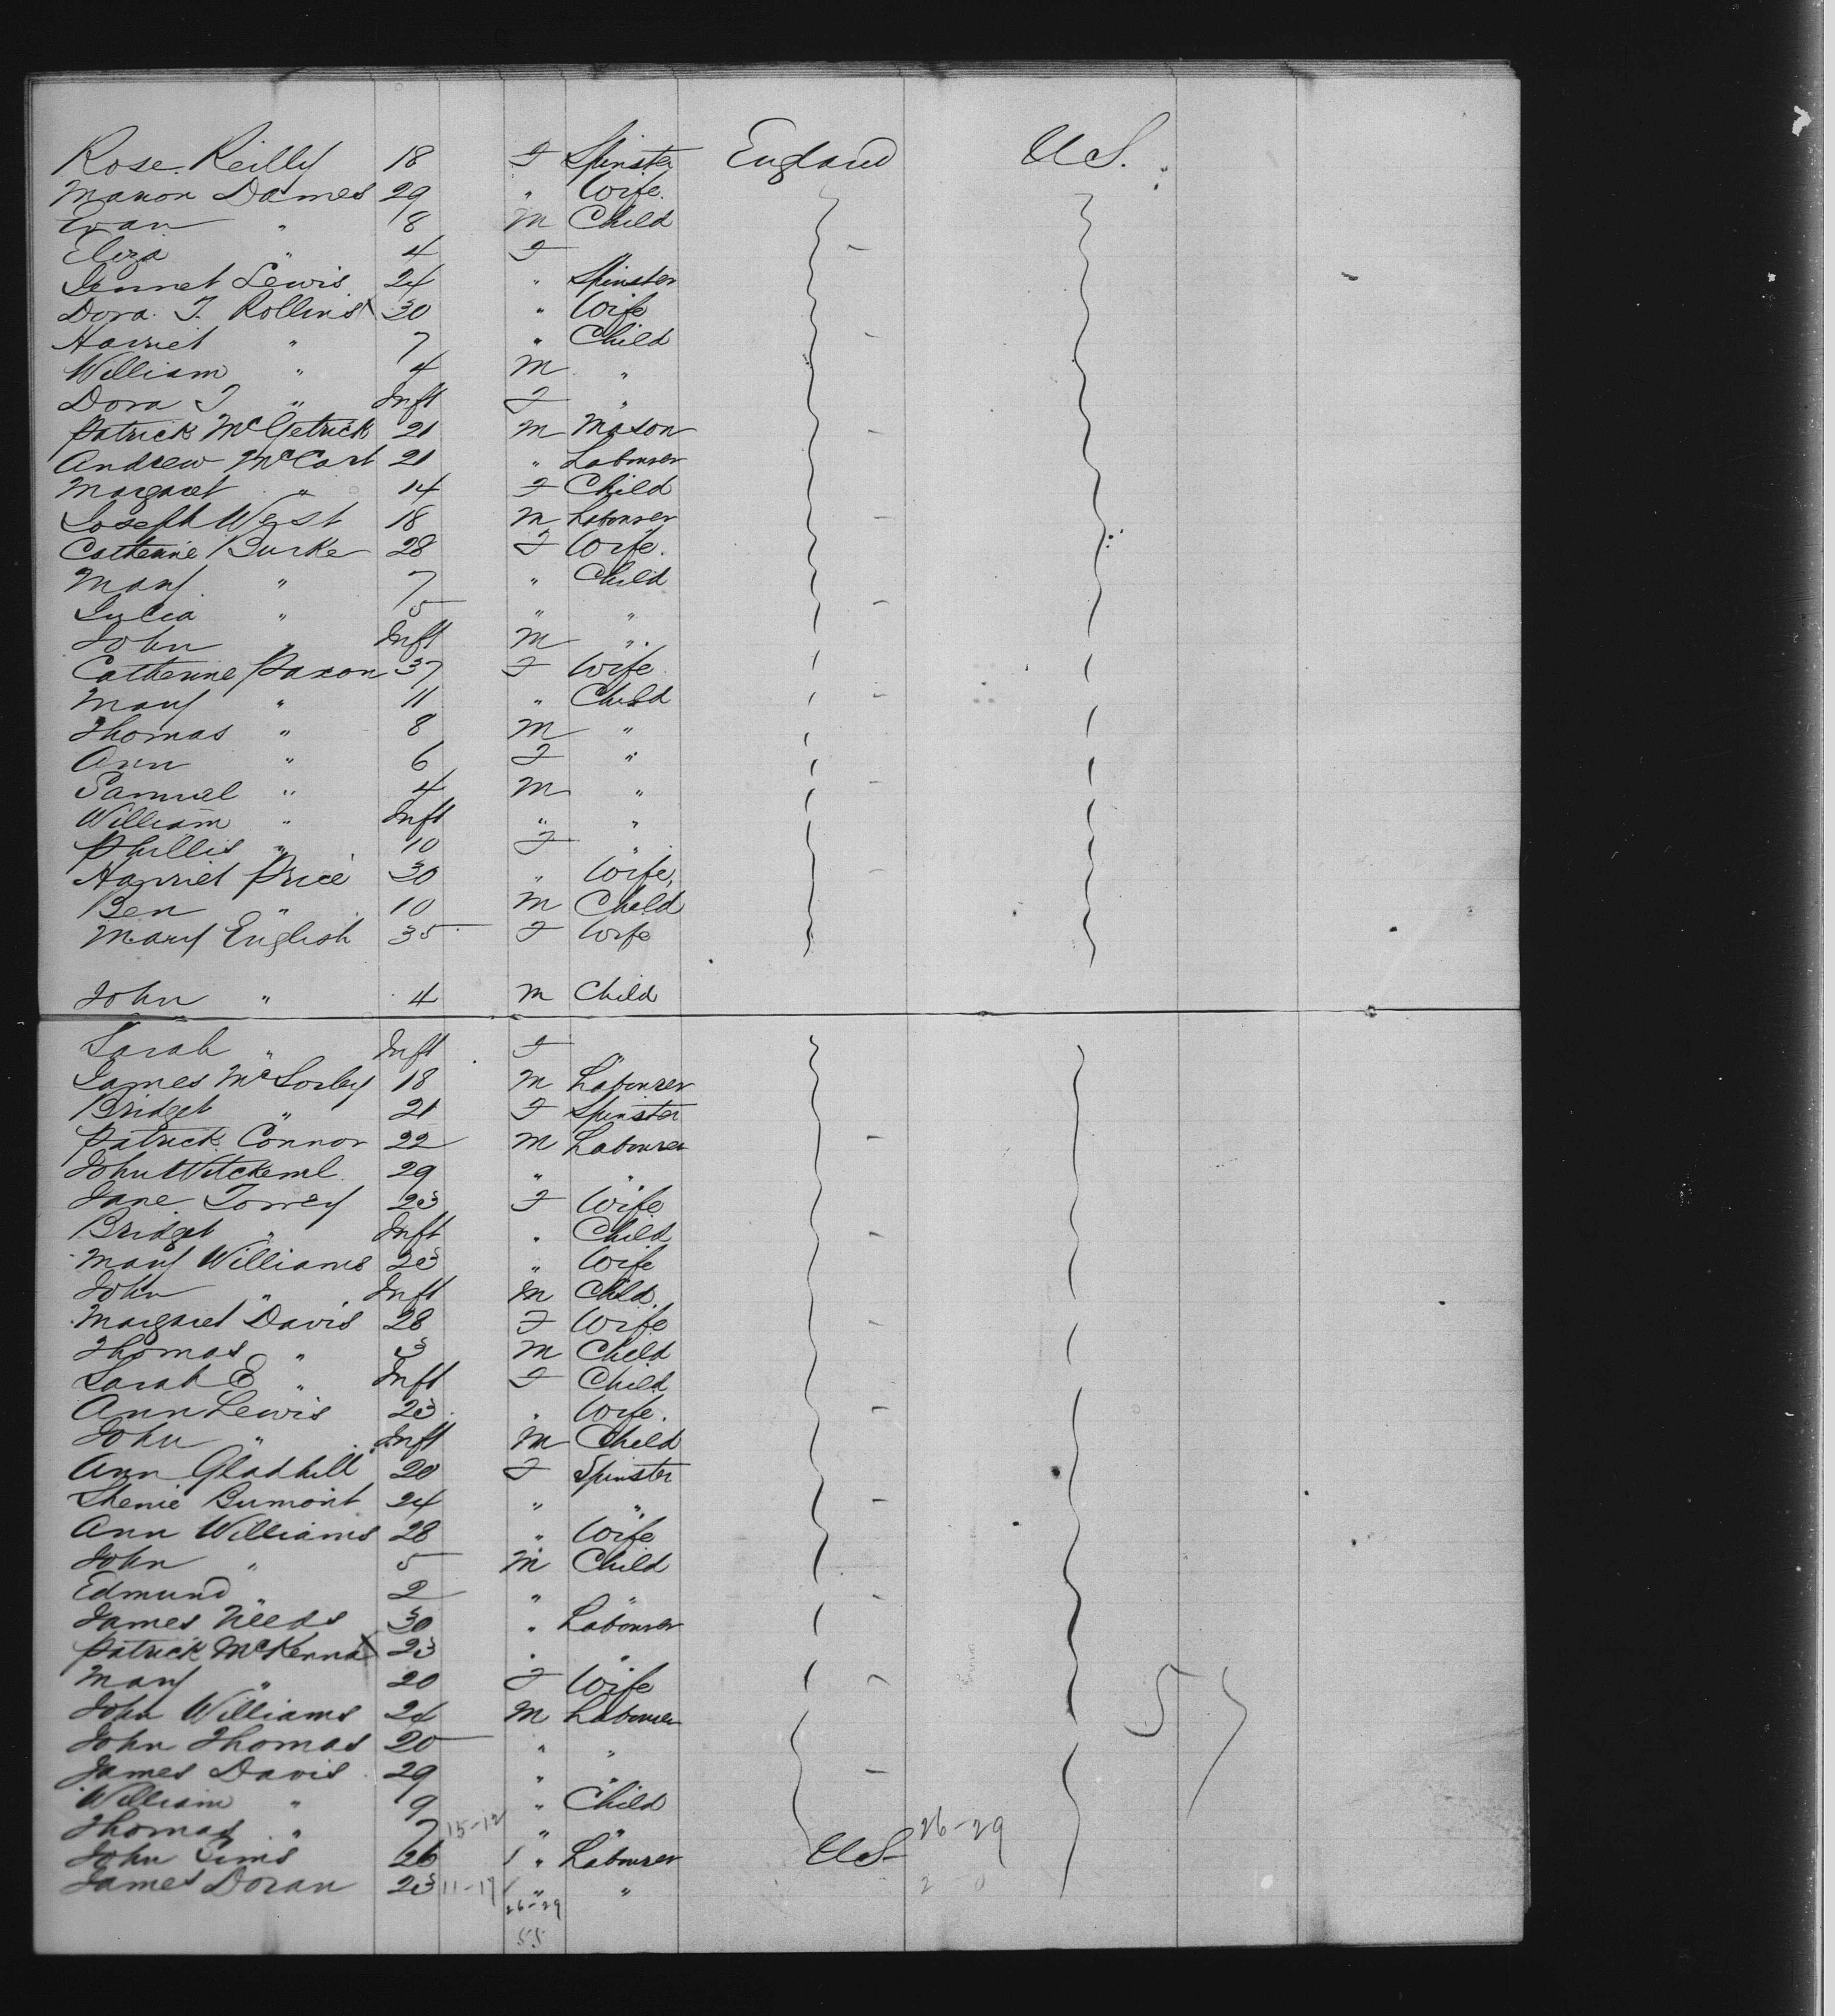 Rose Reilly 18 F Spinster England U.S.
Manon Dames 29 " Wife
Evan " 8 M Child
Eliza " 4 F
Jennet Lewis 24 " Spinster
Dora T. Rollins 30 " Wife
Harriet " 7 " Child
William " 4 M "
Dora T " Inft F "
Patrick McGetrick 21 M Mason
Andrew McCart 21 " Labourer
Margaret " 14 F Child
Joseph West 18 M Labourer
Catherine Burke 28 F Wife.
Mary " 7 " Child
Julia " 5 " "
John " Inft M "
Catherine Paxon 37 F Wife
Mary " 11 " Child
Thomas " 8 M "
Ann " 6 F "
Samuel " 4 M "
William " Inft " "
Phillis " 10 F "
Harriet Price 30 " Wife
Ben " 10 M Child
Mary English 35 F Wife
John " 4 M Child
Sarah " Inft F "
James McSorley 18 M Labourer
Bridget " 21 F Spinster
Patrick Connor 22 M Labourer
John 29 " "
Jane Torrey 23 F Wife
Bridget " Inft " Child
Mary Williams 23 " Wife
John " Inft M Child.
Margaret Davis 28 F Wife
Thomas " 3 M Child
Sarah E " Inft F Child
Ann Lewis 23 " Wife.
John " Inft M Child
Ann Gladhill 20 F Spinster
Bumont 24 " "
Ann Williams 28 " Wife
John " 5 M Child
Edmund " 2 " "
James Needs 30 " Labourer
Patrick McKenna 23 " "
Mary " 20 F Wife
John Williams 24 M Labourer
John Thomas 20 " "
James Davis 29 " "
William " 9 " Child
Thomas " 7 15-12 " "
John Sims 26 " Labourer US 26-29
James Doran 23 11-17 " "
26-29
55
57